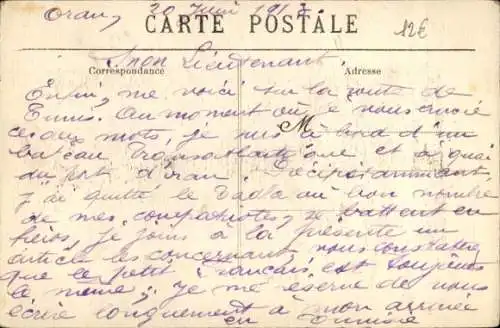 Oran, 20 Juin 1917.
CARTE POSTALE
12€
Mon Lieutenant.
Correspondance
Adresse
Enfin, me voici sur la route de
Tunis. Au moment où je vous écris
ces deux mots, je suis à bord d'un
M
bateau transatlantique et à quai
du port d'Oran.
j'ai quitté le Dadla où bon nombre
de mes compatriotes, se battent en
héros, je joins à la présente un
article les concernant, vous constaterez
que le petit Français est toujours
le même; je me réserve de vous
écrire longuement à mon arrivée
en Tunisie